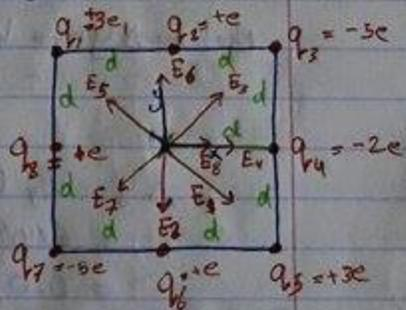 q₁=+3e, q₂=+e q₃=-5e
d d
E₆
E₅ y E₃
d d
q₈=+e x E₈ E₄ q₄=-2e
d
E₇ E₂ d
d d
q₇=-5e q₆=+e q₅=+3e